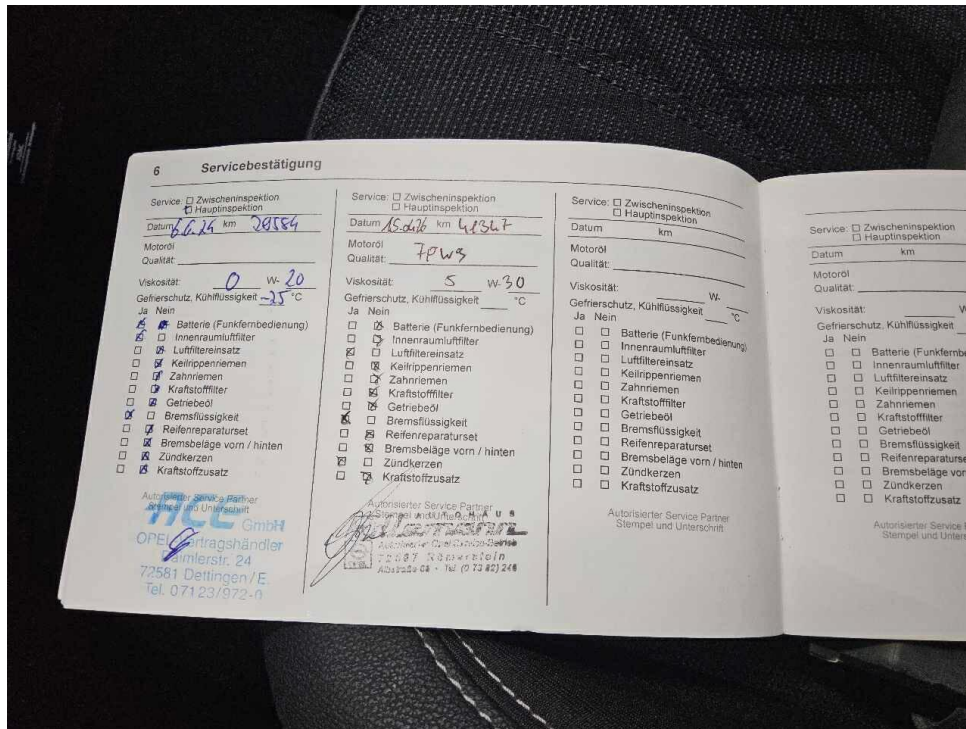 6 Servicebestätigung
Service: □ Zwischeninspektion
□ Hauptinspektion
Datum km 29584
Motoröl
Qualität:
Viskosität: 0 W- 20
Gefrierschutz, Kühlflüssigkeit -25 °C
Ja Nein
Batterie (Funkfernbedienung)
Innenraumluftfilter
Luftfiltereinsatz
Keilrippenriemen
Zahnriemen
Kraftstofffilter
Getriebeöl
Bremsflüssigkeit
Reifenreparaturset
Bremsbeläge vorn / hinten
Zündkerzen
Kraftstoffzusatz
Autorisierter Service Partner
Stempel und Unterschrift
GmbH
OPEL Vertragshändler
Daimlerstr. 24
72581 Dettingen/E.
Tel. 07123/972-0
Service: □ Zwischeninspektion
□ Hauptinspektion
Datum km 41347
Motoröl
Qualität:
Viskosität: 5 W-30
Gefrierschutz, Kühlflüssigkeit °C
Ja Nein
Batterie (Funkfernbedienung)
Innenraumluftfilter
Luftfiltereinsatz
Keilrippenriemen
Zahnriemen
Kraftstofffilter
Getriebeöl
Bremsflüssigkeit
Reifenreparaturset
Bremsbeläge vorn / hinten
Zündkerzen
Kraftstoffzusatz
Autorisierter Service Partner
Stempel und Unterschrift
AUTOHAUS
Autorisierter Opel Service-Betrieb
Römerstein
Tel (0 73 82)
Service: □ Zwischeninspektion
□ Hauptinspektion
Datum km
Motoröl
Qualität:
Viskosität: W-
Gefrierschutz, Kühlflüssigkeit °C
Ja Nein
Batterie (Funkfernbedienung)
Innenraumluftfilter
Luftfiltereinsatz
Keilrippenriemen
Zahnriemen
Kraftstofffilter
Getriebeöl
Bremsflüssigkeit
Reifenreparaturset
Bremsbeläge vorn / hinten
Zündkerzen
Kraftstoffzusatz
Autorisierter Service Partner
Stempel und Unterschrift
Service: □ Zwischeninspektion
□ Hauptinspektion
Datum km
Motoröl
Qualität:
Viskosität: W
Gefrierschutz, Kühlflüssigkeit
Ja Nein
Batterie (Funkfernb
Innenraumluftfilter
Luftfiltereinsatz
Keilrippenriemen
Zahnriemen
Kraftstofffilter
Getriebeöl
Bremsflüssigkeit
Reifenreparaturse
Bremsbeläge vor
Zündkerzen
Kraftstoffzusatz
Autorisierter Service
Stempel und Unter